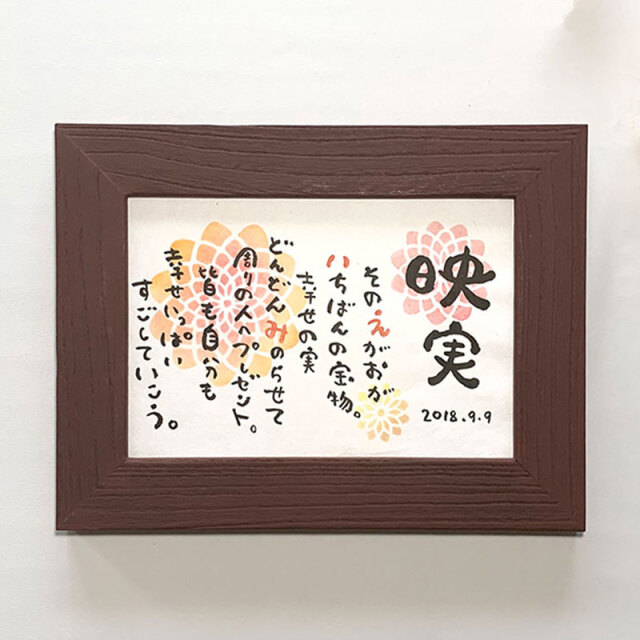 映実
2018.9.9
そのえがおが
いちばんの宝物。
幸せの実
どんどんみのらせて
周りの人へプレゼント。
皆も自分も
幸せいっぱい
すごしていこう。